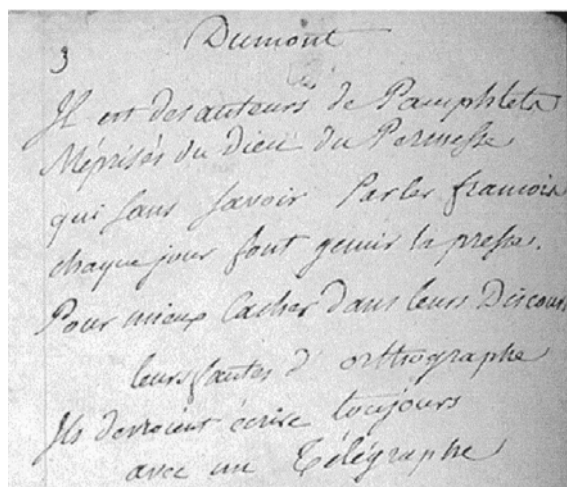 3
Dumont
Il est des auteurs de Pamphlets
Méprisés du Dieu du Permesse
qui sans savoir Parler francois
chaque jour font gemir la presse.
Pour mieux Cacher dans leurs Discours
leurs fautes d'orthographe
Ils devroient écrire toujours
avec un Télégraphe